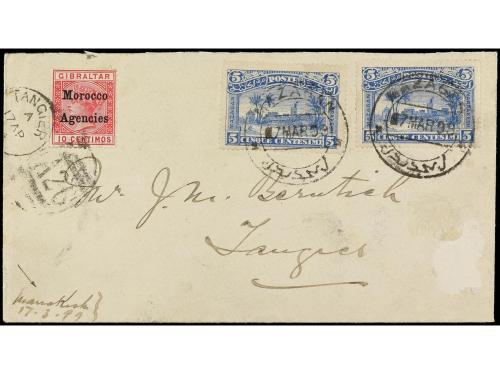 GIBRALTAR
Morocco
Agencies
10 CENTIMOS
5 POSTE 5
5 CINQUE CENTESIMI 5
5 POSTE 5
5 CINQUE CENTESIMI 5
TANGIER
A
MAZAGAN
MAR
MAZAGAN
MAR
Mr J. M. Bernstich
Tangier
Marrakesh
17-3-99